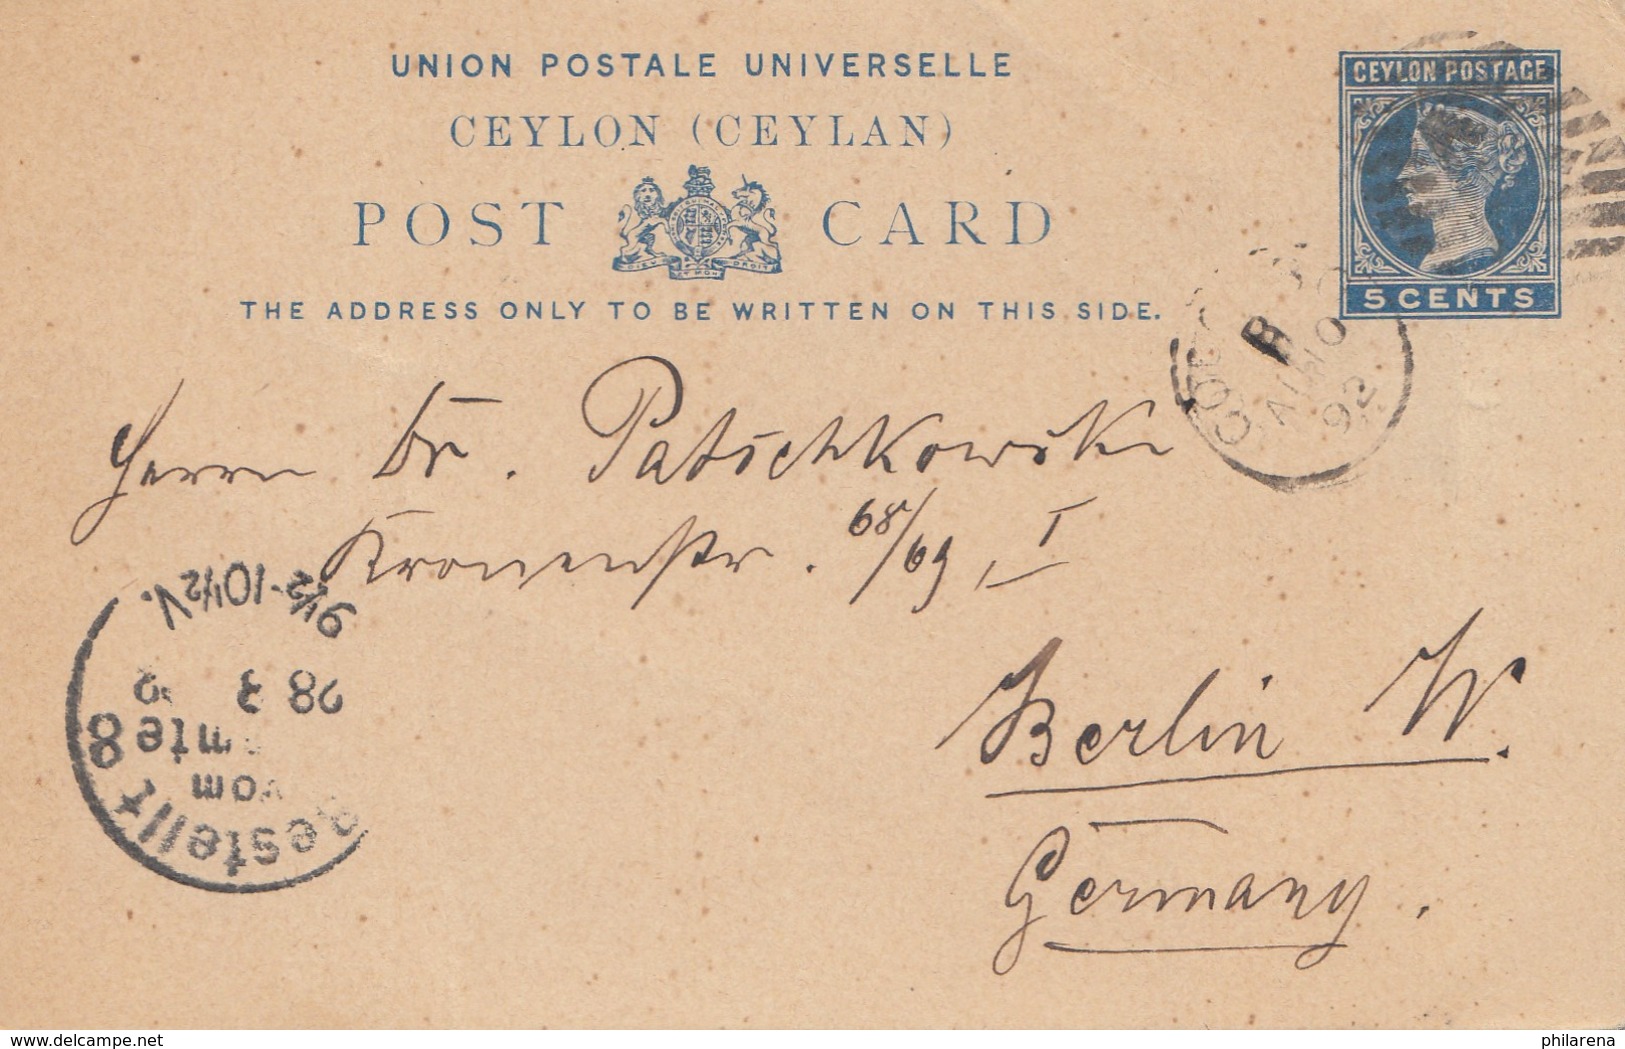 UNION POSTALE UNIVERSELLE
CEYLON (CEYLAN)
POST CARD
DIEU ET MON DROIT
THE ADDRESS ONLY TO BE WRITTEN ON THIS SIDE.
CEYLON POSTAGE
5 CENTS
B
92
Herrn Dr. Patschkowski
Kronenstr. 68/69, I
Berlin W.
Germany.
Bestellt
vom
8
28 3
9½-10½V.
www.delcampe.net
philarena